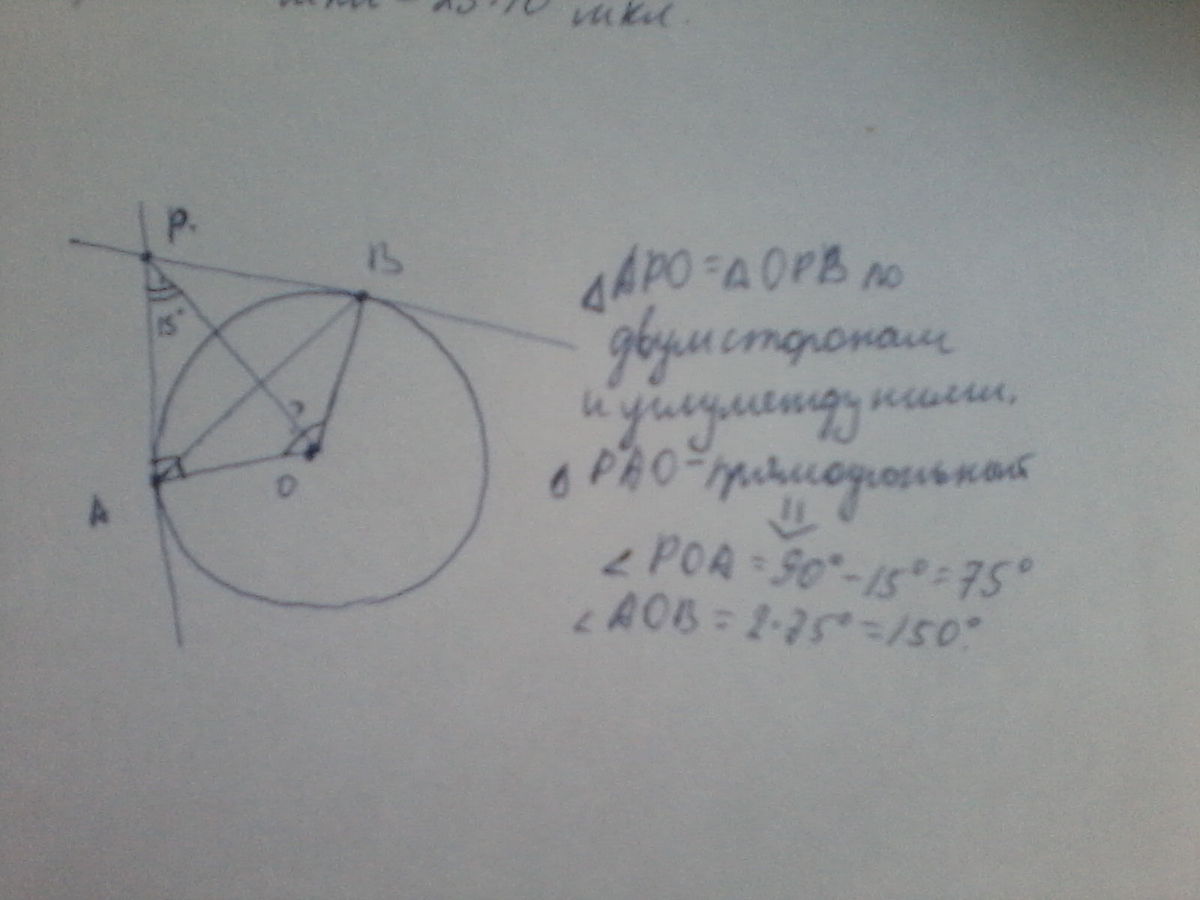 мкл.
P.
B
15°
?
O
A
△APO = △OPB по
двум сторонам
и углу между ними.
△ PAO - прямоугольный
⇓
∠ POA = 90° - 15° = 75°
∠ AOB = 2·75° = 150°.